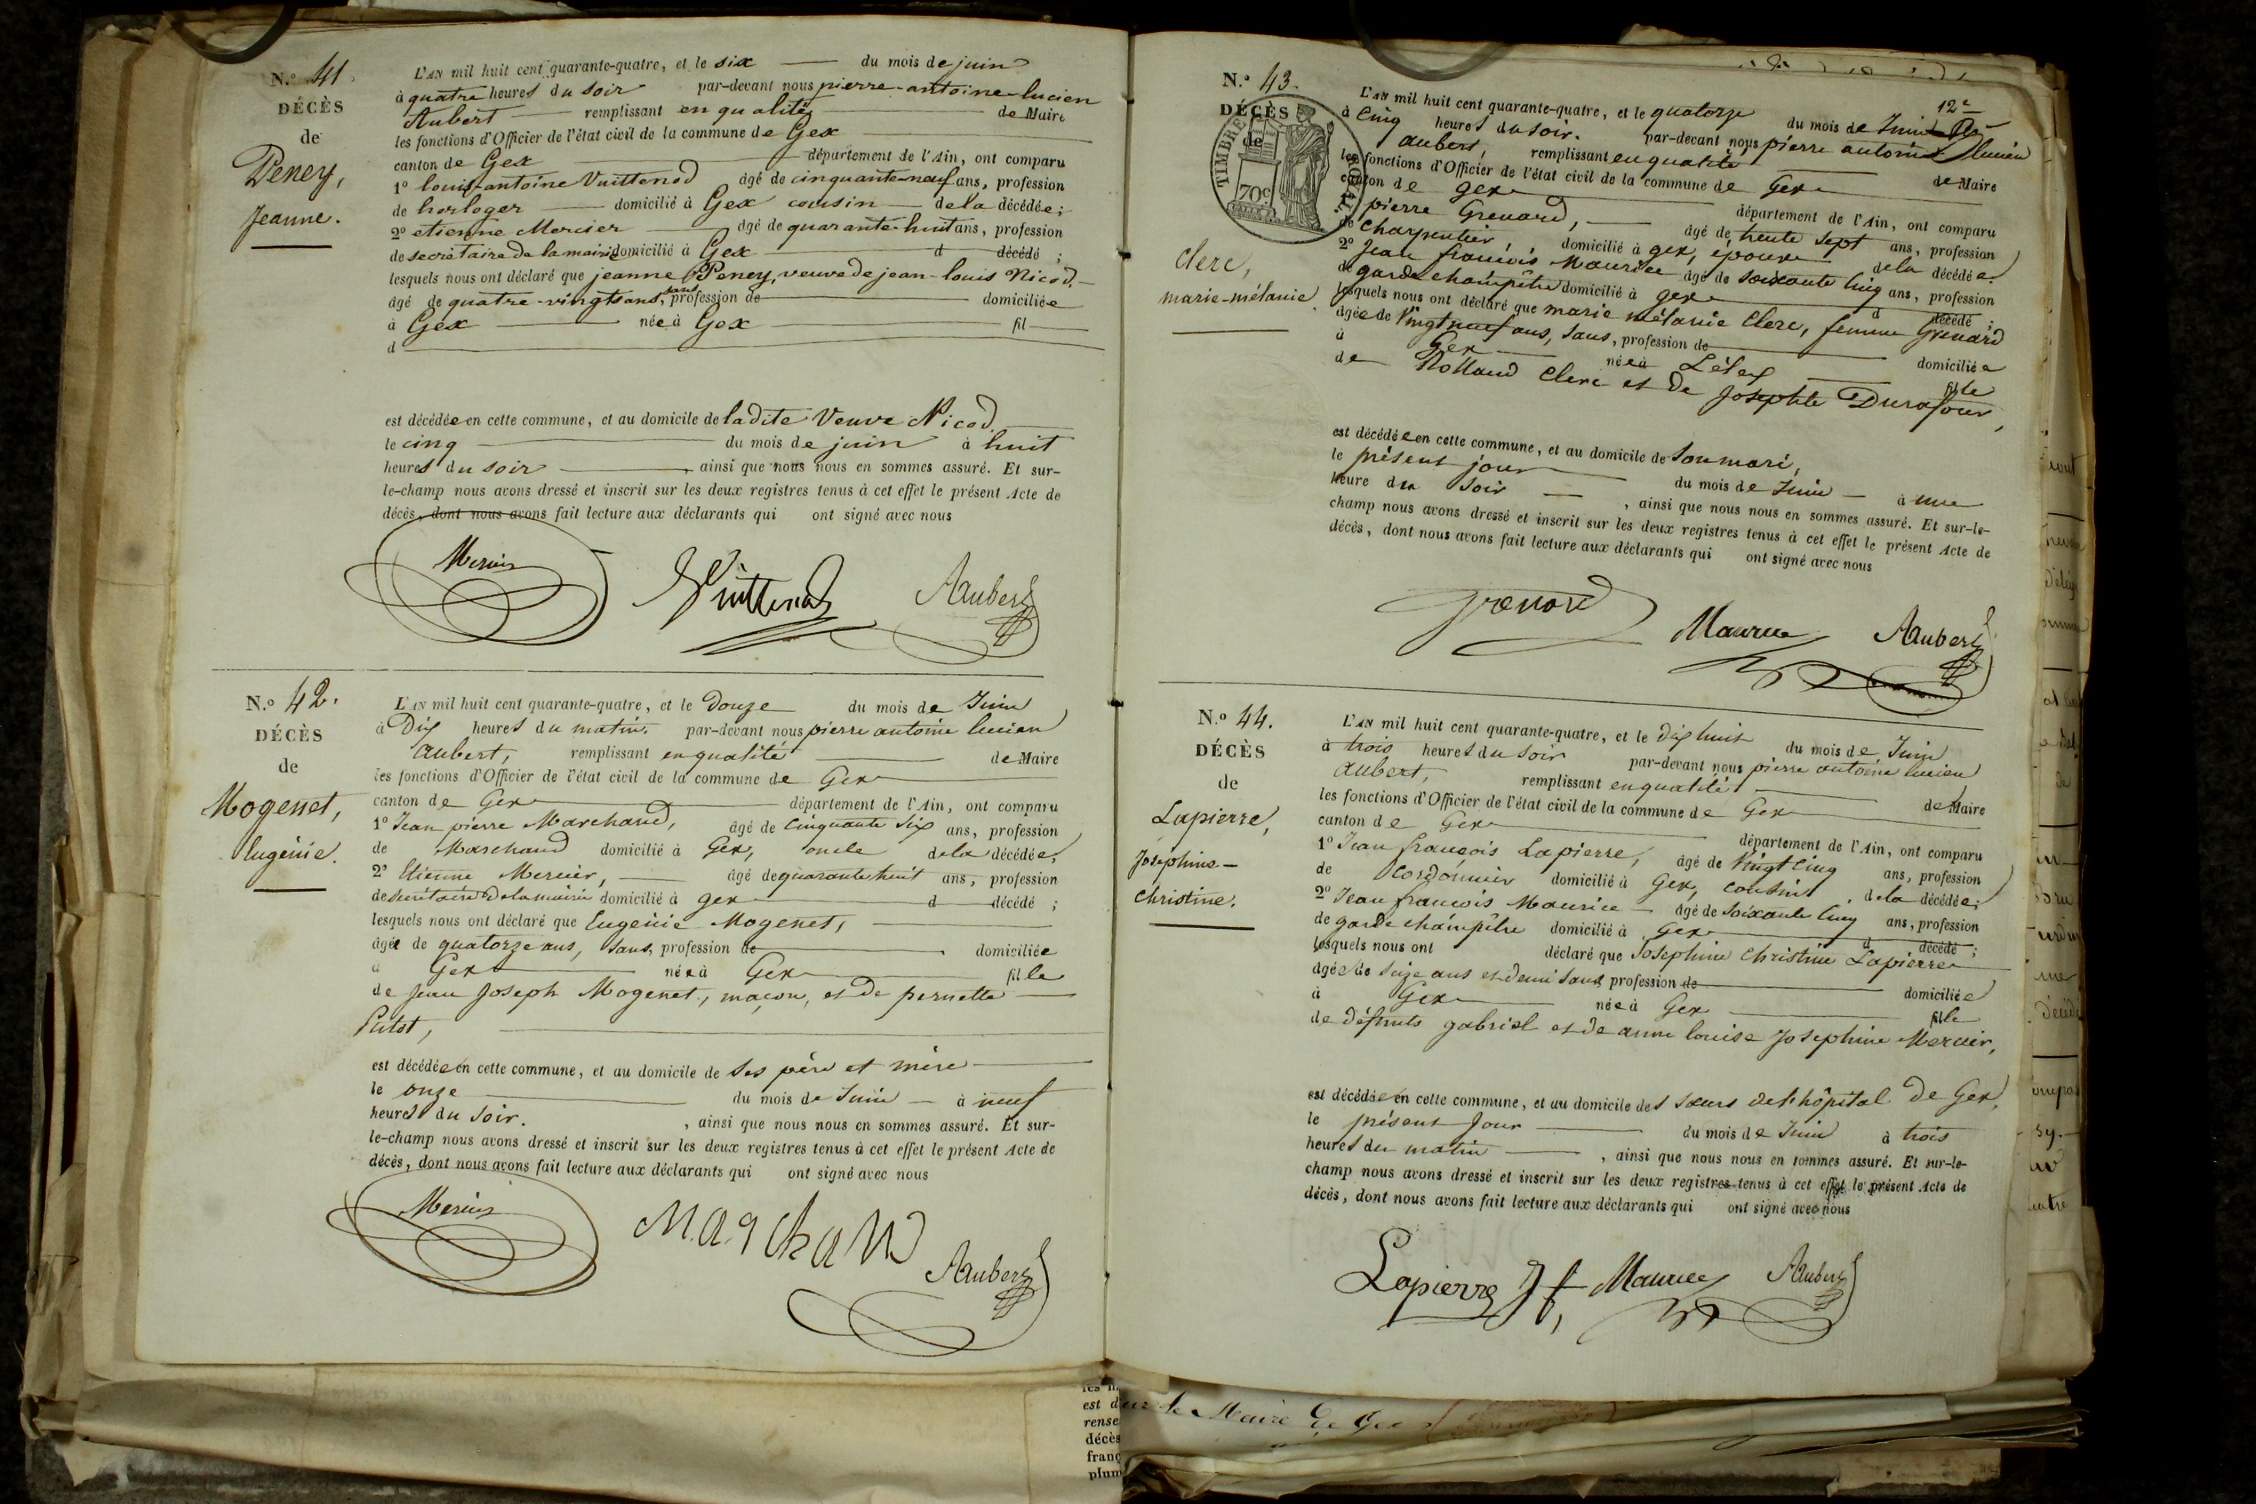 N.° 41.
DÉCÈS
de
Peney,
Jeanne.
L'AN mil huit cent quarante-quatre, et le six du mois de juin
à quatre heures du soir par-devant nous pierre-antoine-lucien
Aubert remplissant en qualité de Maire
les fonctions d'Officier de l'état civil de la commune de Gex
canton de Gex département de l'Ain, ont comparu
1° louis-antoine Vuittenod âgé de cinquante-neuf ans, profession
de horloger domicilié à Gex cousin de la décédée;
2° etienne Mercier âgé de quarante-huit ans, profession
de secrétaire de la mairie domicilié à Gex d décédé ;
lesquels nous ont déclaré que jeanne Peney, veuve de jean-louis Nicod,
âgé de quatre-vingts ans, sans profession de domiciliée
à Gex née à Gex fil
d
est décédée en cette commune, et au domicile de ladite Veuve Nicod
le cinq du mois de juin à huit
heures du soir , ainsi que nous nous en sommes assuré. Et sur-
le-champ nous avons dressé et inscrit sur les deux registres tenus à cet effet le présent Acte de
décès, dont nous avons fait lecture aux déclarants qui ont signé avec nous
Mercier Vuittenod AAubert
N.° 42.
DÉCÈS
de
Mogenet,
Eugénie.
L'AN mil huit cent quarante-quatre, et le Douze du mois de Juin
à Dix heures du matin, par-devant nous pierre antoine lucien
aubert, remplissant en qualité de Maire
les fonctions d'Officier de l'état civil de la commune de Gex
canton de Gex département de l'Ain, ont comparu
1° Jean pierre Marchand, âgé de Cinquante Six ans, profession
de Marchand domicilié à Gex, oncle de la décédée;
2° Etienne Mercier, âgé de quarante huit ans, profession
de secrétaire de la mairie domicilié à gex d décédé ;
lesquels nous ont déclaré que Eugénie Mogenet,
âgée de quatorze ans, Sans, profession de domiciliée
à Gex née à Gex fille
de Jean Joseph Mogenet, maçon, et de pernette
est décédée en cette commune, et au domicile de Ses père et mère
le onze du mois de Juin à neuf
heures du Soir. , ainsi que nous nous en sommes assuré. Et sur-
le-champ nous avons dressé et inscrit sur les deux registres tenus à cet effet le présent Acte de
décès, dont nous avons fait lecture aux déclarants qui ont signé avec nous
Mercier Marchand AAubert
N.° 43.
DÉCÈS
de
TIMBRE ROYAL.
70c
Clerc,
marie-mélanie.
12e
L'AN mil huit cent quarante-quatre, et le quatorze du mois de Juin
à Cinq heures du soir. par-devant nous pierre antoine lucien
aubert, remplissant en qualité de Maire
les fonctions d'Officier de l'état civil de la commune de Gex
canton de gex département de l'Ain, ont comparu
1° pierre Grenard, âgé de trente sept ans, profession
de Charpentier, domicilié à gex, époux de la décédée
2° Jean francois Maurice âgé de Soixante Cinq ans, profession
de garde champêtre domicilié à gex d décédé ;
lesquels nous ont déclaré que marie mélanie Clerc, femme Grenard
âgée de Vingt neuf ans, Sans, profession de domiciliée
à Gex née à Lélex fille
de Rolland Clerc et de Josephte Durafour,
est décédée en cette commune, et au domicile de Son mari,
le présent jour du mois de Juin à une
heure du Soir , ainsi que nous nous en sommes assuré. Et sur-le-
champ nous avons dressé et inscrit sur les deux registres tenus à cet effet le présent Acte de
décès, dont nous avons fait lecture aux déclarants qui ont signé avec nous
Grenard Maurice AAubert
N.° 44.
DÉCÈS
de
Lapierre,
Josephine-
Christine.
L'AN mil huit cent quarante-quatre, et le dix huit du mois de Juin
à trois heures du Soir par-devant nous pierre antoine lucien
aubert, remplissant en qualité de Maire
les fonctions d'Officier de l'état civil de la commune de Gex
canton de Gex département de l'Ain, ont comparu
1° Jean françois Lapierre, âgé de Vingt Cinq ans, profession
de Cordonnier domicilié à Gex, cousin de la décédée;
2° Jean francois Maurice âgé de Soixante Cinq ans, profession
de garde champêtre domicilié à Gex d décédé ;
lesquels nous ont déclaré que Josephine Christine Lapierre
âgée de Seize ans et demi Sans profession de domiciliée
à Gex née à Gex fille
de défunts gabriel et de anne louise Josephine Mercier,
est décédée en cette commune, et au domicile des Sœurs de l'hôpital de Gex,
le présent Jour du mois de Juin à trois
heures du matin , ainsi que nous nous en sommes assuré. Et sur-le-
champ nous avons dressé et inscrit sur les deux registres tenus à cet effet le présent Acte de
décès, dont nous avons fait lecture aux déclarants qui ont signé avec nous
Lapierre Jf, Maurice AAubert